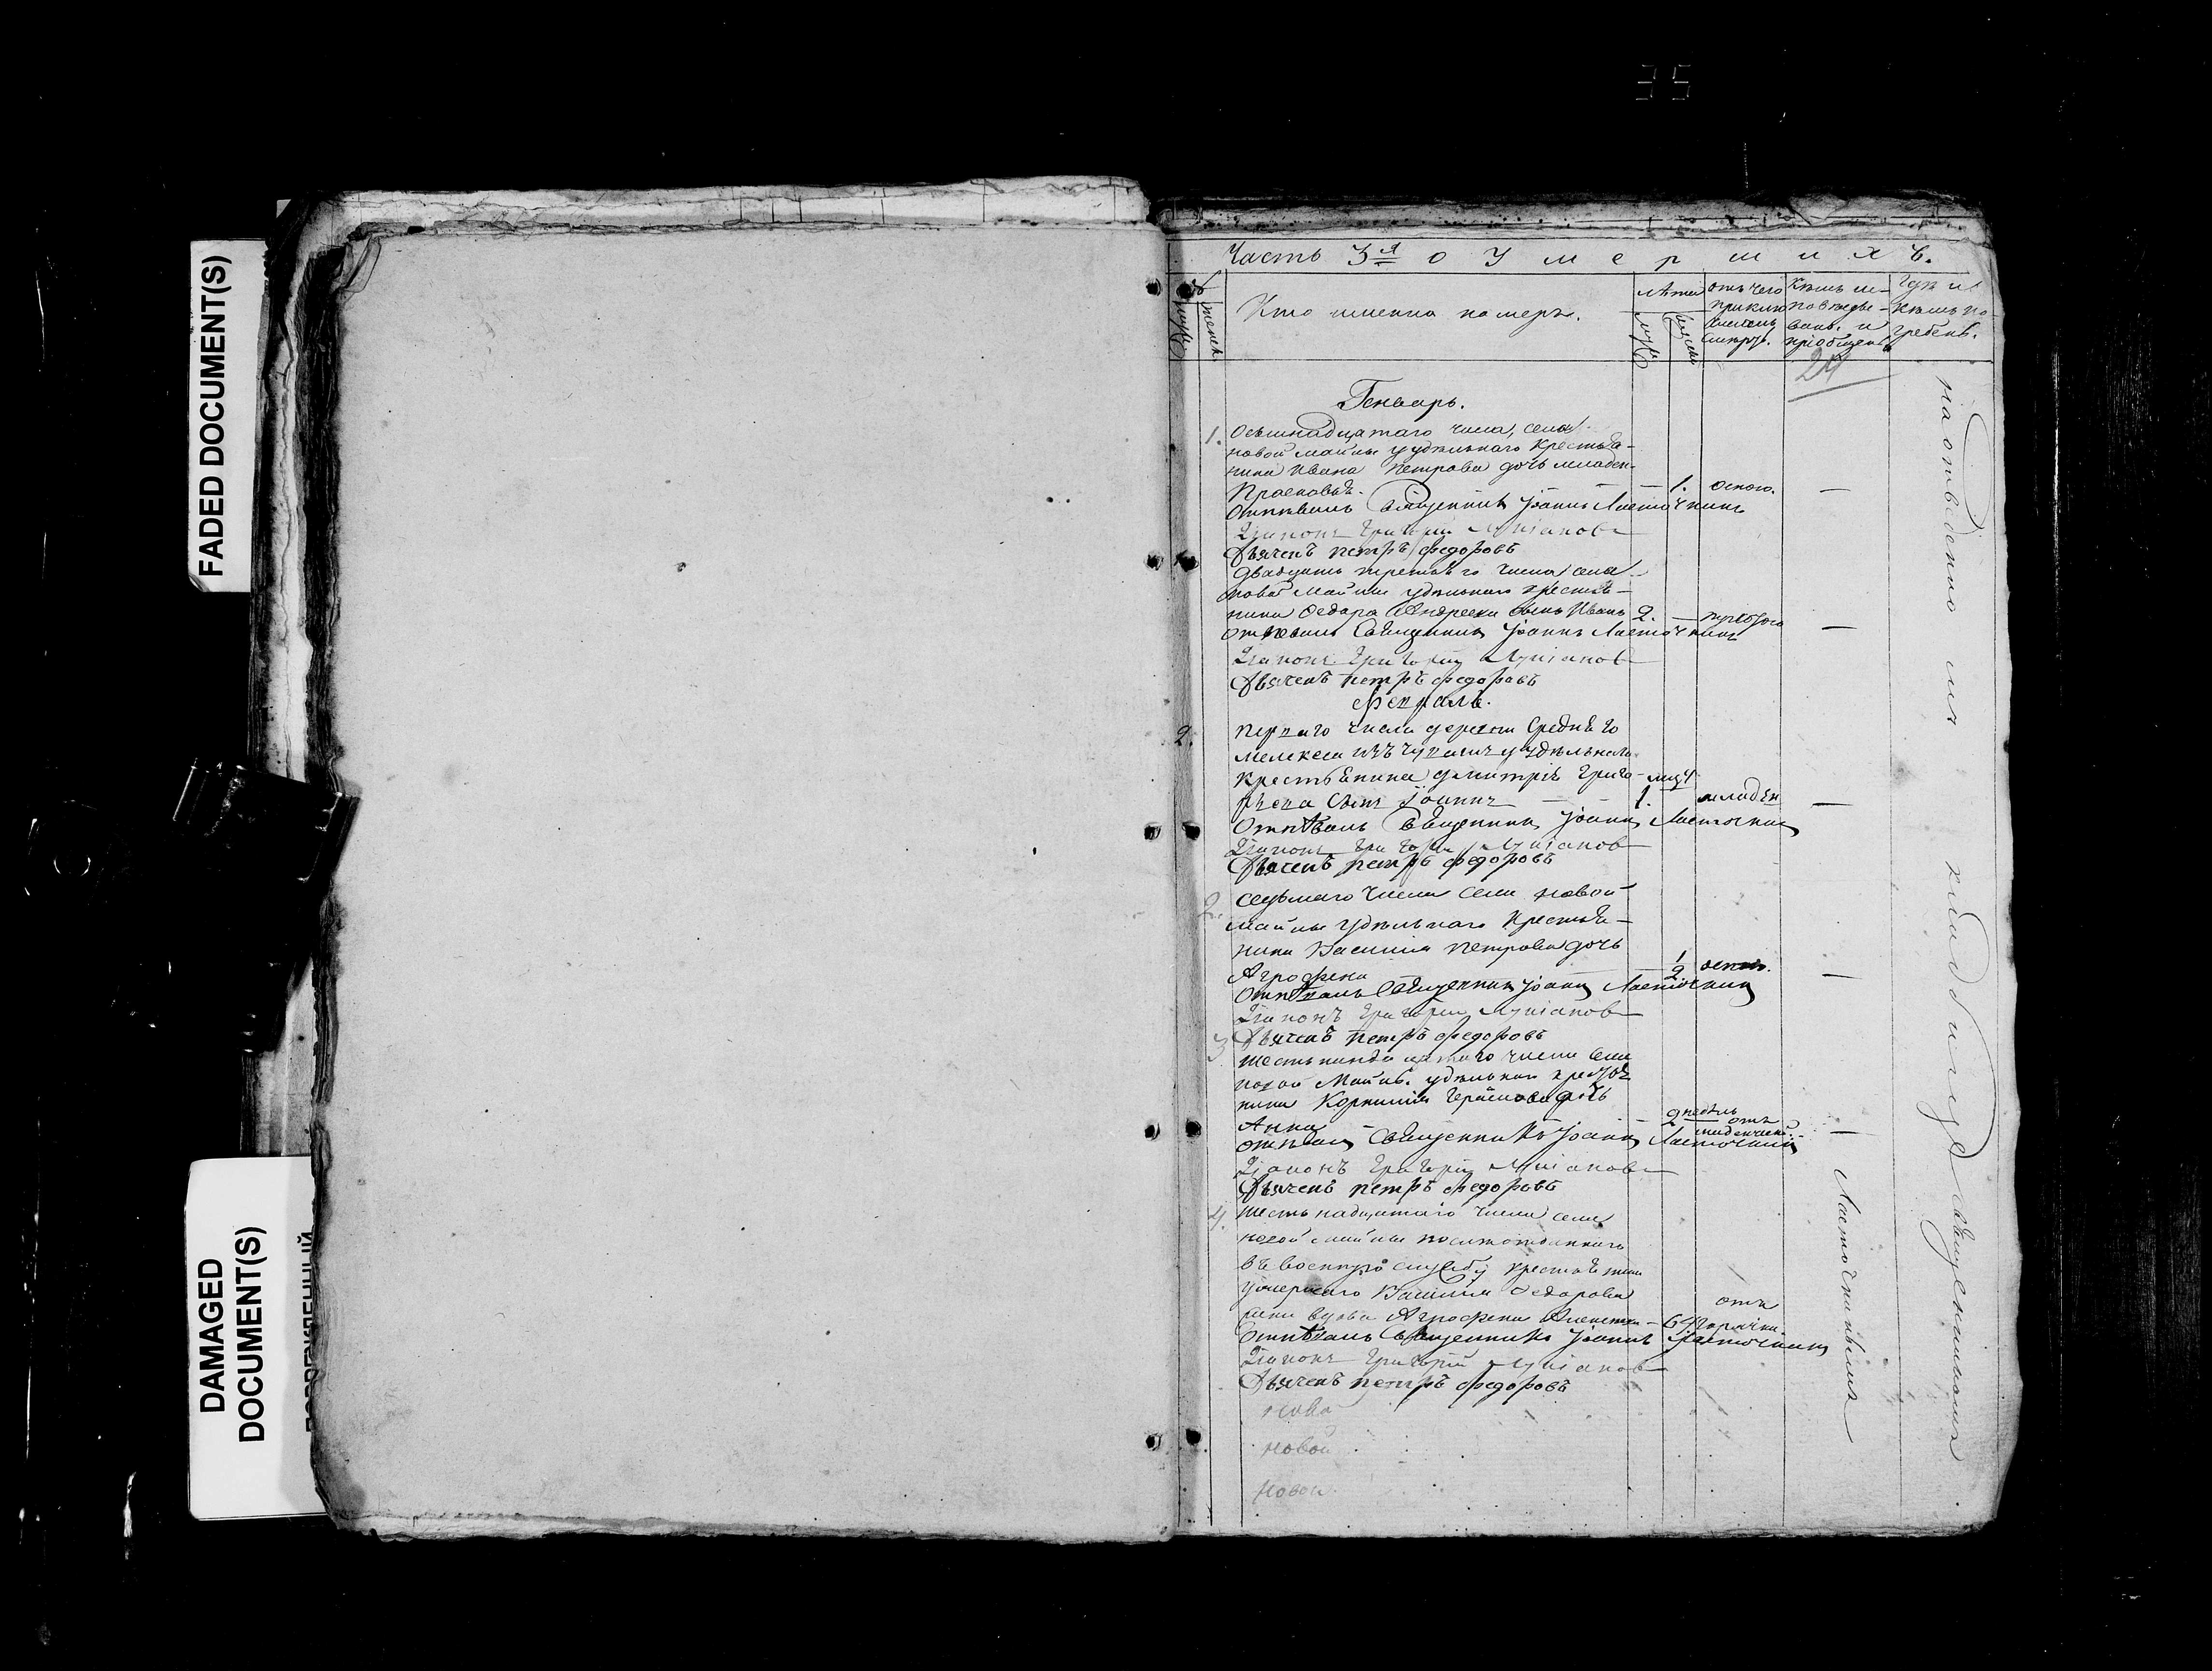 35
FADED DOCUMENT(S)
DAMAGED
DOCUMENT(S)
Часть 3я о умершихъ.
муж.
женск.
Кто именно померъ.
лѣта
муж.
женск.
отъ чего
приклю
чилась
смерть.
Кѣмъ ис-
повѣды-
ванъ и
пріобщенъ
Гдѣ и
кѣмъ по-
гребенъ.
24
Генварь.
1. Осьмнадцатаго числа, села
новой майны удѣльнаго крестья-
нина Ивана Петрова дочь младен.
Просковья. — — 1. оспою. —
Отпѣвалъ Священникъ Іоаннъ Ласточкинъ
Діаконъ Григорій
Дьячекъ петръ федоровъ
двадцать третьяго числа села
новой Майны удѣльнаго крестья-
нина Федора Андреева сынъ Иванъ 2. — —
отпѣвалъ Священникъ Іоаннъ Ласточкинъ
Діаконъ Григорій
Дьячекъ петръ федоровъ
Февраль.
2. перваго числа деревни Средняго
мелекеса изъ удѣльнаго
крестьянина димитрія Григо-
рьева сынъ Іоаннъ — 1. младен —
Отпѣвалъ Священникъ Іоаннъ Ласточкинъ
Діаконъ Григорій
Дьячекъ петръ федоровъ
2. седьмаго числа села новой
майны удѣльнаго крестья-
нина Василия петрова дочь
Агрофена — 1/2. оспою. —
Отпѣвалъ Священникъ Іоаннъ Ласточкинъ
Діаконъ Григорій
Дьячекъ петръ федоровъ
3 шестьнандцатаго числа села
новой Майны. удѣльнаго крестья
нина Корнилія дочь
Анна — 2 недѣль отъ —
отпѣвалъ Священникъ Іоаннъ Ласточкинъ
Діаконъ Григорій
Дьячекъ петръ федоровъ
4. шестьнадцатаго числа села
новой майны
въ военную службу
умершаго Василия Федорова
вдова Агрофена — 64 отъ горячки
Отпѣвалъ Священникъ Іоаннъ Ласточкинъ
Діаконъ Григорій
Дьячекъ петръ федоровъ
нова
новой
новой
на отведенномъ кладбищѣ Священникомъ
Ласточкинымъ